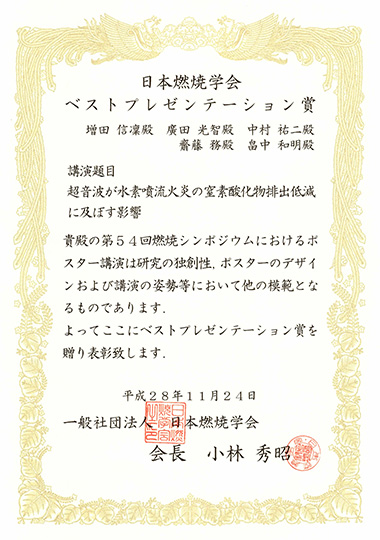 日本燃焼学会
ベストプレゼンテーション賞
増田 信凜殿 廣田 光智殿 中村 祐二殿
齋藤 務殿 畠中 和明殿
講演題目
超音波が水素噴流火炎の窒素酸化物排出低減
に及ぼす影響
貴殿の第54回燃焼シンポジウムにおけるポ
スター講演は研究の独創性,ポスターのデザイ
ンおよび講演の姿勢等において他の模範とな
るものであります.
よってここにベストプレゼンテーション賞を
贈り表彰致します.
平成28年11月24日
一般社団法人 日本燃焼学会
会長 小林 秀昭